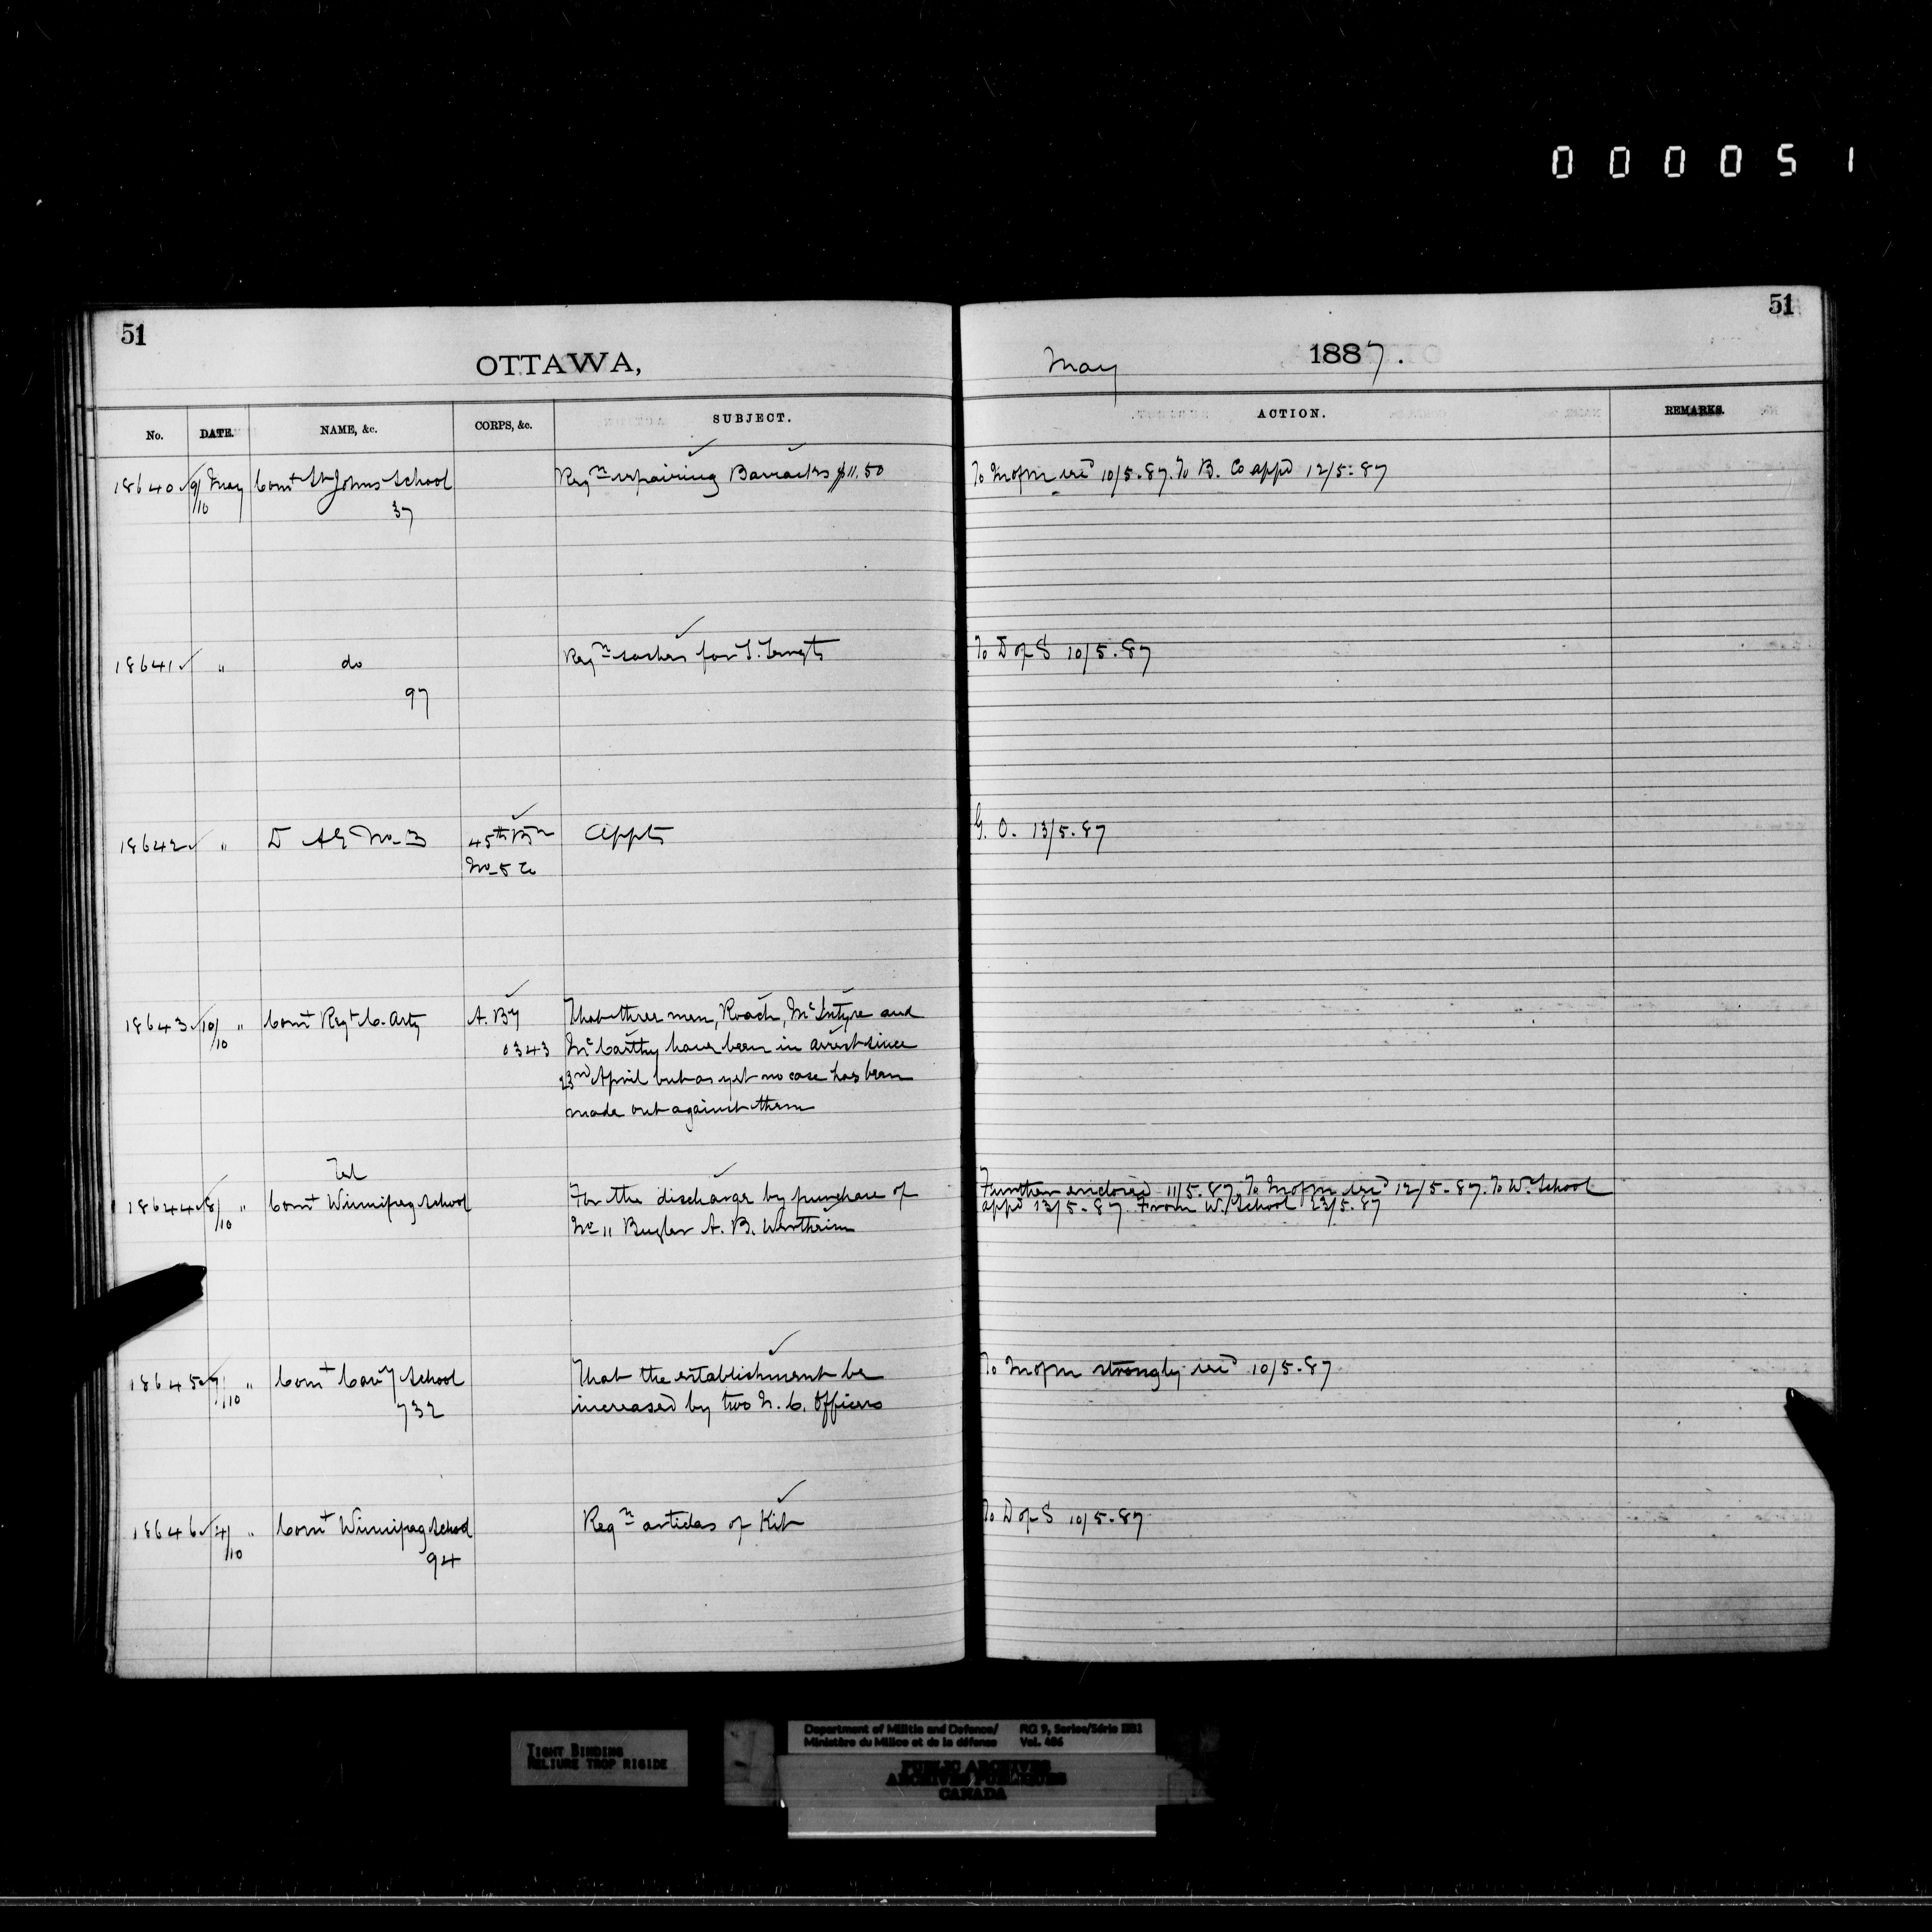 000051
51
51
OTTAWA,
May 1887.
No. DATE. NAME, &c. CORPS, &c. SUBJECT. ACTION. REMARKS.
18640 9/10 May Comt St Johns School Reqn repairing Barracks $11.50 To M of M recd 10/5.87. To B. Co appd 12/5.87
37
18641 " do Reqn sashes for S. Sergts To D of S 10/5.87
97
18642 " D A G No. 3 45th Bn Appts G. O. 13/5.87
No 5 Co
18643 10/10 " Comt Regt C. Arty A. By That three men, Roach, McIntyre and
0343 McCarthy have been in arrest since
23rd April but as yet no case has been
made out against them
Tel
18644 8/10 " Comt Winnipeg School For the discharge by purchase of Further enclosed 11/5.87. To M of M recd 12/5.87. To W. School
No 11 Bugler A. B. Wertheim appd 13/5.87. From W. School 23/5.87
18645 7/10 " Comt Cavy School That the establishment be To M of M strongly recd 10/5.87
732 increased by two N. C. Officers
18646 4/10 " Comt Winnipeg School Reqn articles of Kit To D of S 10/5.87
94
TIGHT BINDING
RELIURE TROP RIGIDE
Department of Militia and Defence/ RG 9, Series/Série IIB1
Ministère du Milice et de la défense Vol. 486
PUBLIC ARCHIVES
ARCHIVES PUBLIQUES
CANADA